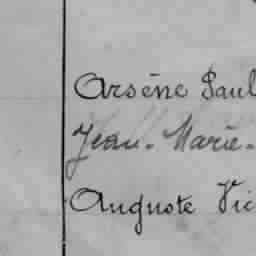 Arsène Paul
Jean-Marie-
Auguste Vic